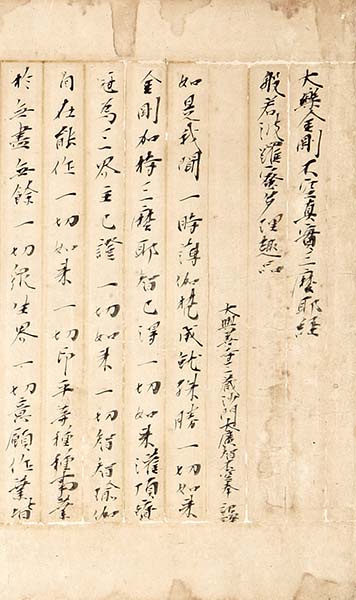 大樂金剛不空真實三麼耶經
般若波羅蜜多理趣品
大興善寺三藏沙門大廣智不空奉 詔譯
如是我聞一時薄伽梵成就殊勝一切如來
金剛加持三麼耶智已得一切如來灌頂寶
冠為三界主已證一切如來一切智智瑜伽
自在能作一切如來一切印平等種種事業
於無盡無餘一切衆生界一切意願作業皆